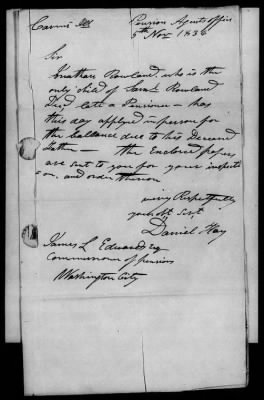 Carmi Ill
Pension Agents office
5th Nov 1836
Sir
Jonathan Rowland who is the
only child of Saml Rowland
Decd late a Pensioner - has
this day applied in person for
the ballance due to his Deceased
father - the Enclosed papers
are sent to you for your inspecti
on. and order thereon
very Respectfully
your Obt Servt
Daniel Hay
James L Edwards Esq
Commissioner of pensions
Washington City